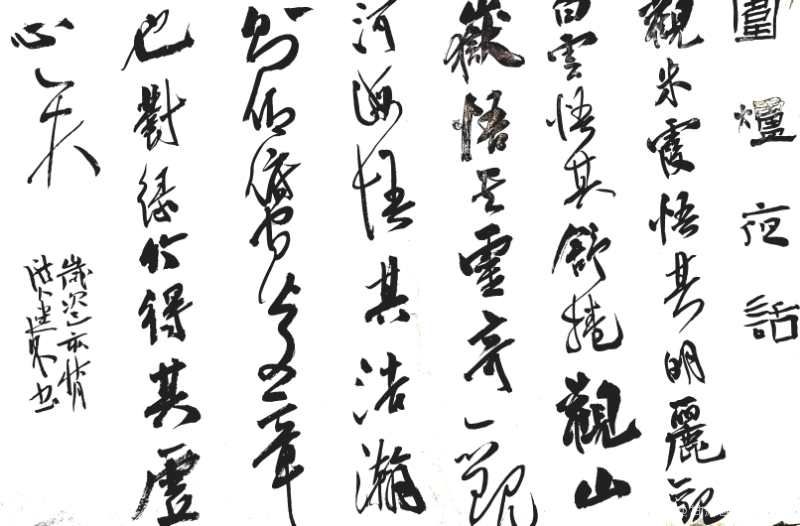 圍爐夜話
觀朱霞悟其明麗觀
白雲悟其舒捲觀山
嶽悟其靈奇觀
河海悟其浩瀚
則仰俯間皆文章
也對綠竹得其虛
心
歲次
書